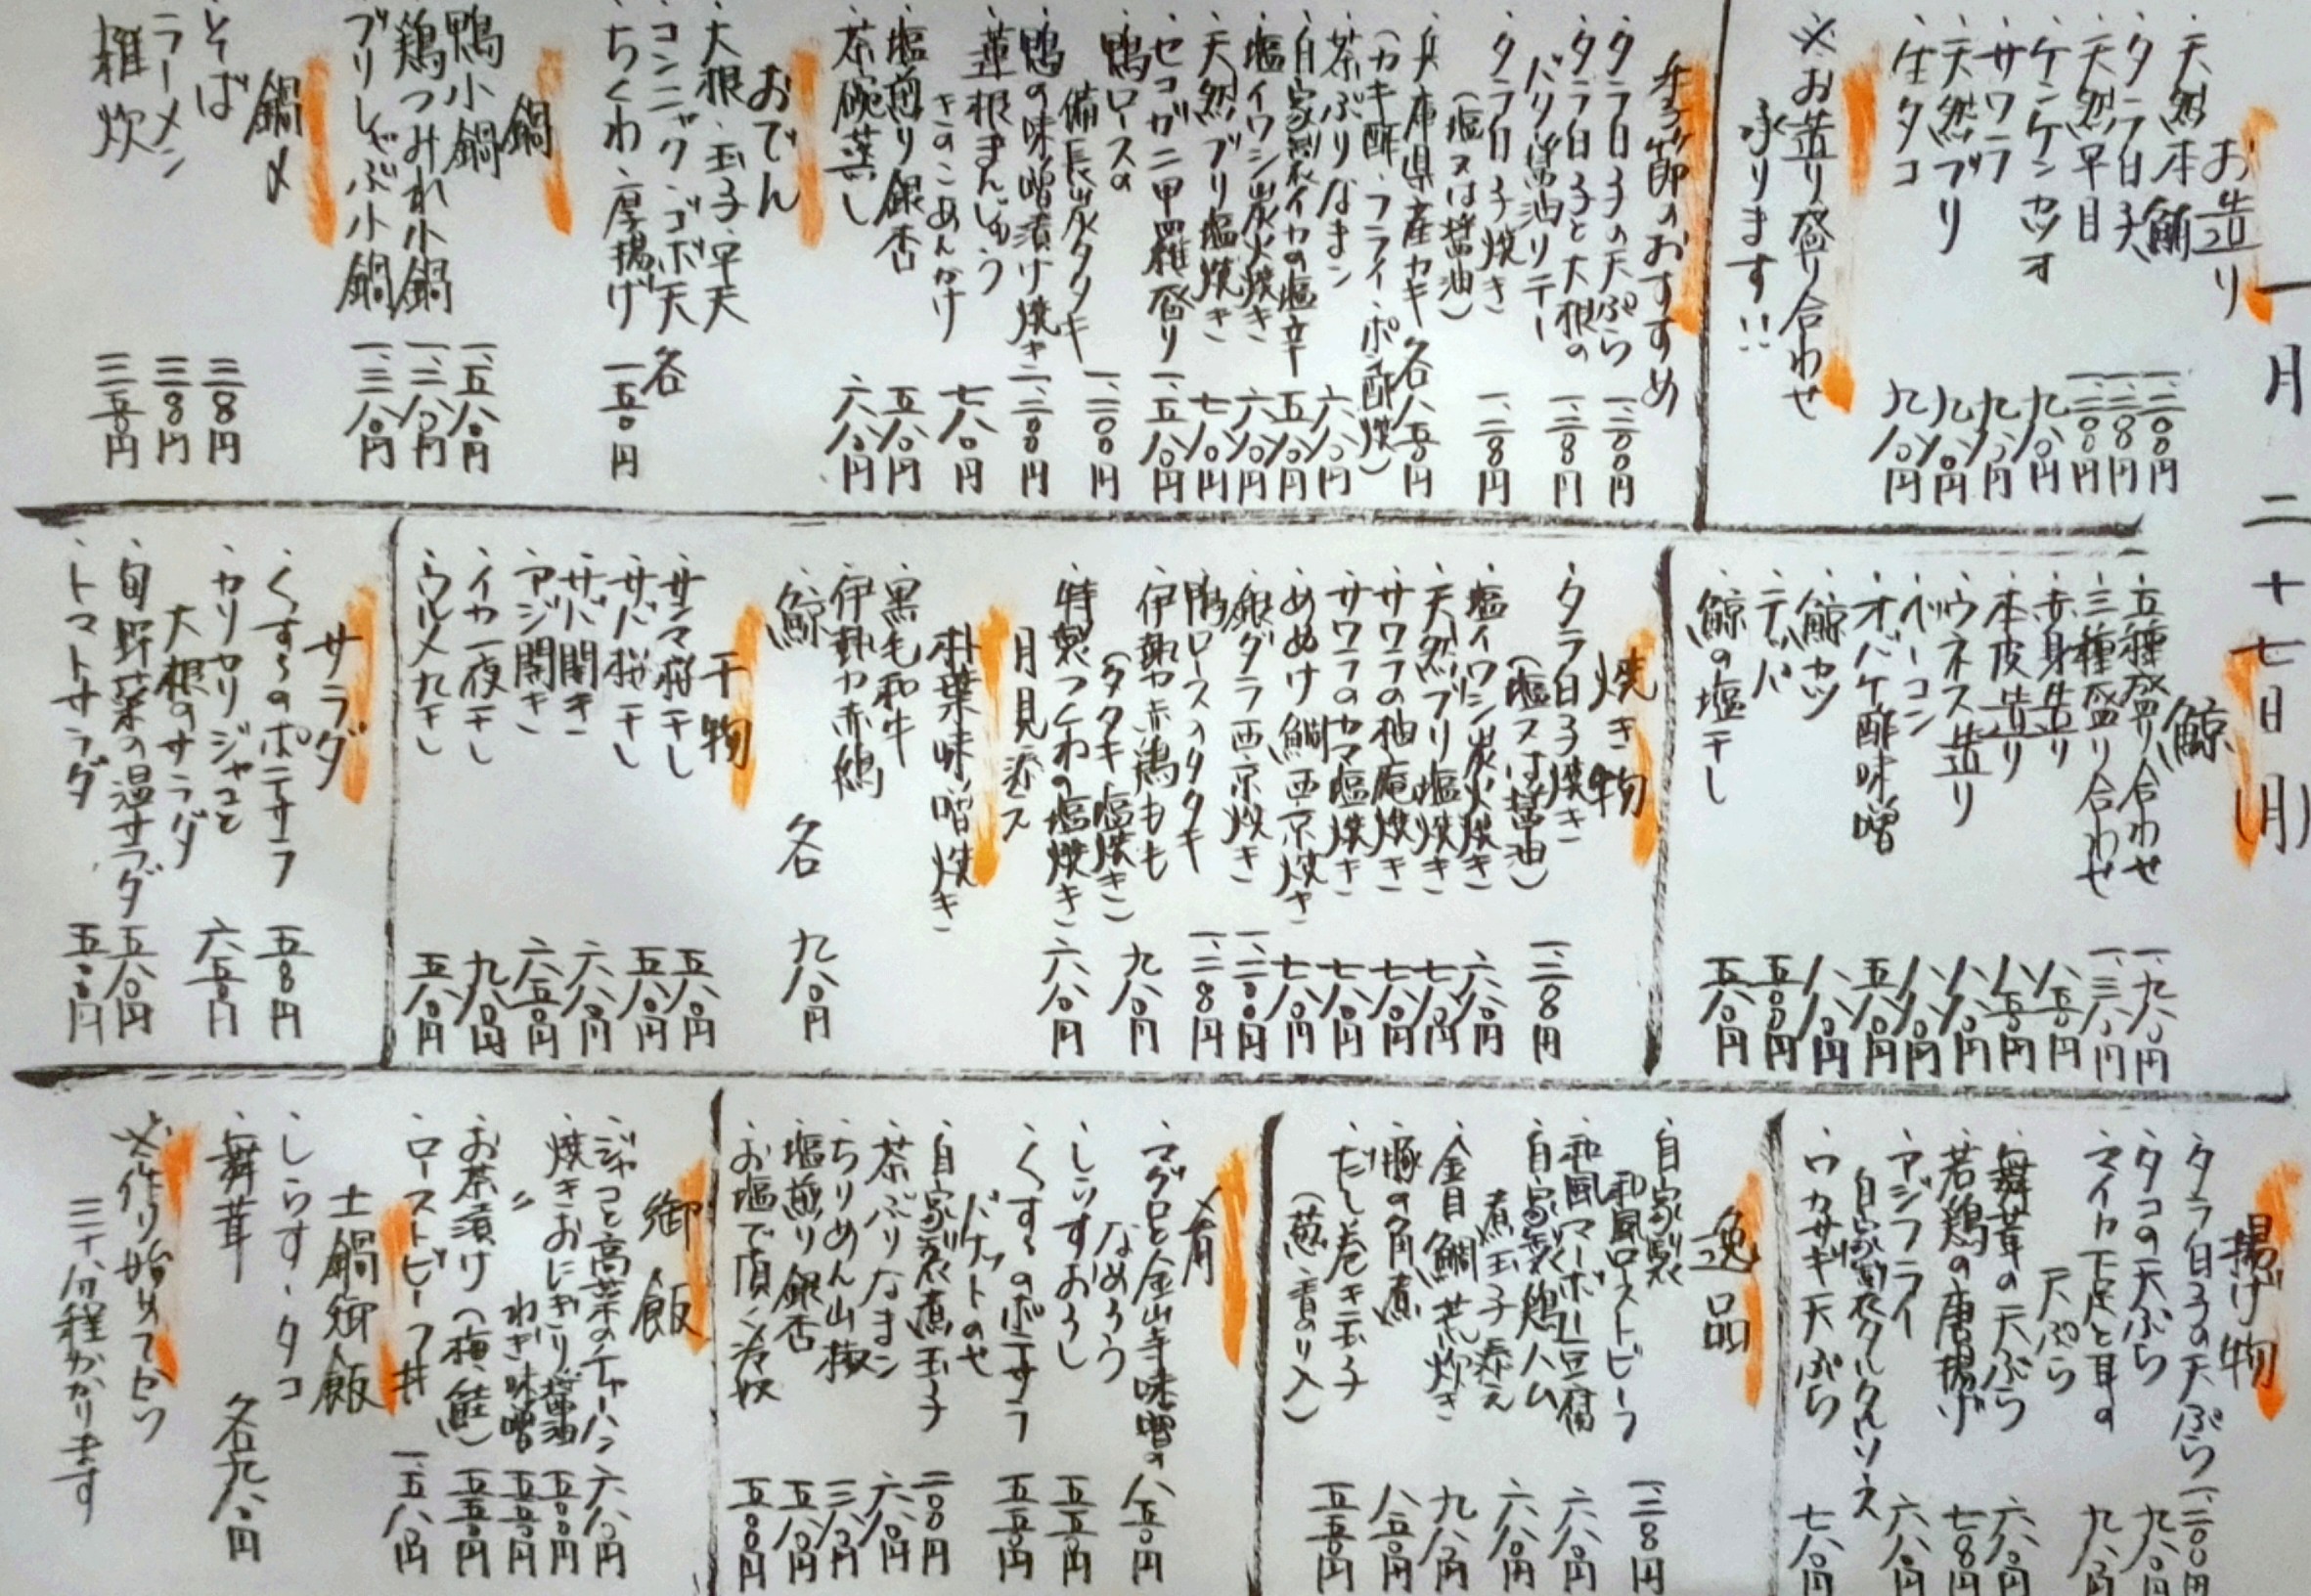 一月二十七日(月)
お造り
・天然本鮪 一、三〇〇円
・タラ白子
・天然平目
・ケンケンカツオ 九八〇円
・サワラ 九八〇円
・天然ブリ 九八〇円
・生タコ 九八〇円
※お造り盛り合わせ
承ります!!
季節のおすすめ
・タラ白子の天ぷら 一、二〇〇円
・タラ白子と大根の
バター醤油ソテー
・タラ白子焼き
(塩又は醤油)
・兵庫県産カキ 各八五〇円
(カキ酢・フライ・ポン酢焼)
・茶ぶりなまこ 六八〇円
・自家製イカの塩辛 五八〇円
・塩イワシ炭火焼き 六八〇円
・天然ブリ塩焼き 七八〇円
・セコガニ甲羅盛り 一、五八〇円
・鴨ロースの
備長炭タタキ
・鴨の味噌漬け焼き
・蓮根まんじゅう
きのこあんかけ 七八〇円
・塩煎り銀杏 五八〇円
・茶碗蒸し 六八〇円
おでん
・大根・玉子・平天
・コンニャク・ゴボ天 各
・ちくわ・厚揚げ 一五〇円
鍋
鴨小鍋 一、五八〇円
鶏つみれ小鍋 一、三八〇円
ブリしゃぶ小鍋 一、三八〇円
鍋〆
そば
ラーメン
雑炊 三五〇円
鯨
・五種盛り合わせ 一、九八〇円
・三種盛り合わせ 一、三八〇円
・赤身造り 八五〇円
・本皮造り 八五〇円
・ウネス造り 八八〇円
・ベーコン 八八〇円
・オバケ酢味噌 五八〇円
・鯨カツ 八八〇円
・テッパ 五〇〇円
・鯨の塩干し 五八〇円
焼き物
・タラ白子焼き
(塩又は醤油)
・塩イワシ炭火焼き 六八〇円
・天然ブリ塩焼き 七八〇円
・サワラの柚庵焼き 七八〇円
・サワラのカマ塩焼き 七八〇円
・めぬけ鯛西京焼き 七八〇円
・銀ダラ西京焼き
・鴨ロースのタタキ
・伊勢赤鶏もも
(タタキ・塩焼き) 九八〇円
・特製つくねの塩焼き 六八〇円
月見添え
朴葉味噌焼き
・黒毛和牛
・伊勢赤鶏
・鯨 各 九八〇円
干物
・サンマ桜干し 五八〇円
・サバ桜干し 五八〇円
・サバ開き 六八〇円
・アジ開き 六五〇円
・イカ一夜干し 九八〇円
・ウルメ丸干し 五八〇円
サラダ
・くずしのポテサラ
・カリカリジャコと
大根のサラダ 六五〇円
・旬野菜の温サラダ 五八〇円
・トマトサラダ 五〇〇円
揚げ物
・タラ白子の天ぷら 一、二〇〇円
・タコの天ぷら 九八〇円
・マイカ下足と耳の
天ぷら 九八〇円
・舞茸の天ぷら 六八〇円
・若鶏の唐揚げ
・アジフライ
自家製タルタルソース 六八〇円
・ワカサギ天ぷら 七八〇円
逸品
・自家製
和風ローストビーフ
・和風マーボー豆腐 六八〇円
・自家製鶏ハム
煮玉子添え 六八〇円
・金目鯛荒炊き 九八〇円
・豚の角煮 八五〇円
・だし巻き玉子
(葱・青のり入) 五五〇円
〆肴
・マグロと金山寺味噌の
なめろう 八五〇円
・しらすおろし 五五〇円
・くずしのポテサラ
バケットのせ 五五〇円
・自家製煮玉子
・茶ぶりなまこ 六八〇円
・ちりめん山椒 三八〇円
・塩煎り銀杏 五八〇円
・お塩で頂く冷奴 五〇〇円
御飯
・ジャコと高菜のチャーハン 六八〇円
・焼きおにぎり 醤油 五〇〇円
〃 ねぎ味噌 五五〇円
・お茶漬け(梅・鮭) 五五〇円
・ローストビーフ丼 一、五八〇円
土鍋御飯
・しらす・タコ
・舞茸 各九八〇円
※作り始めてから
三十分程かかります